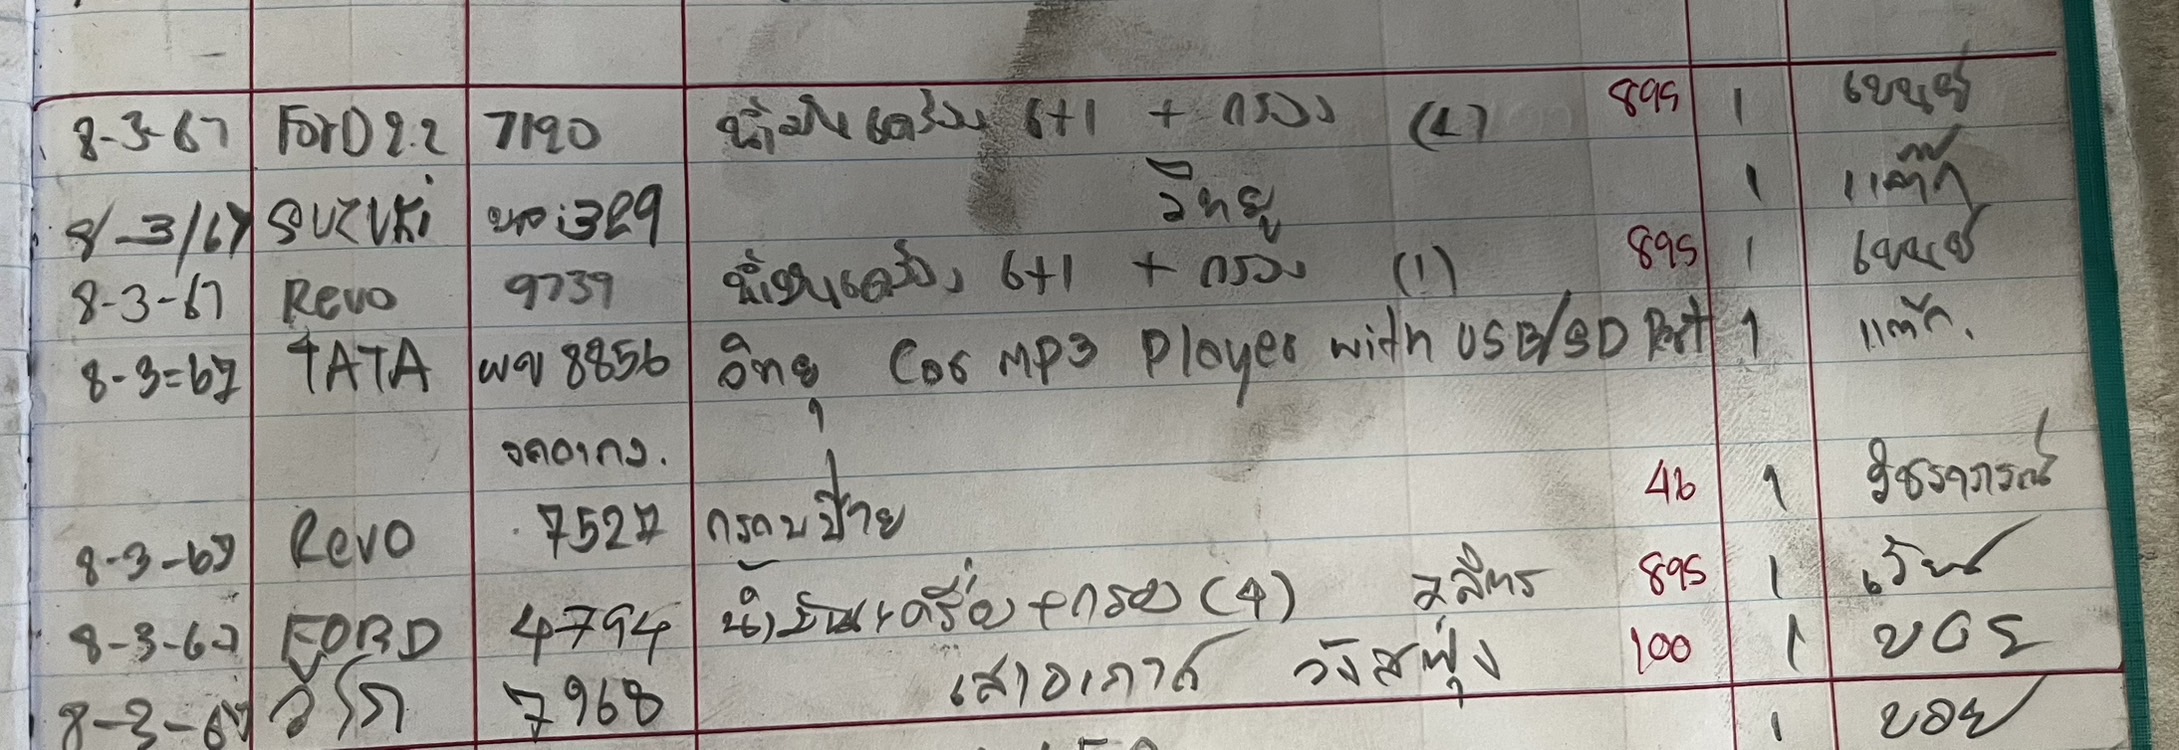 8-3-67 FORD 2.2 7190 น้ำมันเครื่อง 6+1 + กรอง (4) 895 1 เขนย์
8/-3/67 SUZUKi 329 วิทยุ 1 แต๊ก
8-3-67 Revo 9739 น้ำมันเครื่อง 6+1 + กรอง (1) 895 1
8-3-67 TATA ผข 8856 วิทยุ Car MP3 Player with USB/SD Port 1 แต๊ก.
8-3-67 Revo 7527 กรอบป้าย 46 1 วัชราภรณ์
8-3-67 FORD 4794 น้ำมันเครื่อง + กรอง (4) 7 ลิตร 895 1
8-3-67 วีโก 7968 เสาอากาศ วังสพุง 100 1 บอย
1 บอย